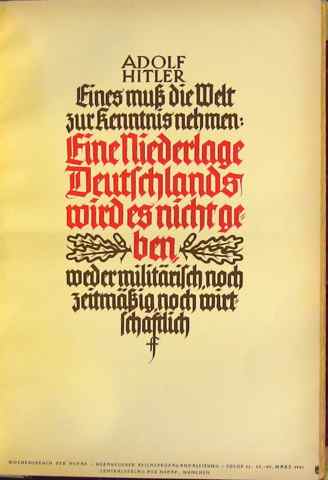 ADOLF
HITLER
Eines muß die Welt
zur Kenntnis nehmen:
Eine Niederlage
Deutschlands
wird es nicht ge-
ben,
weder militärisch, noch
zeitmäßig, noch wirt-
schaftlich
WOCHENSPRUCH DER NSDAP · HERAUSGEBER REICHSPROPAGANDALEITUNG · FOLGE
MÄRZ 1941
ZENTRALVERLAG DER NSDAP, MÜNCHEN